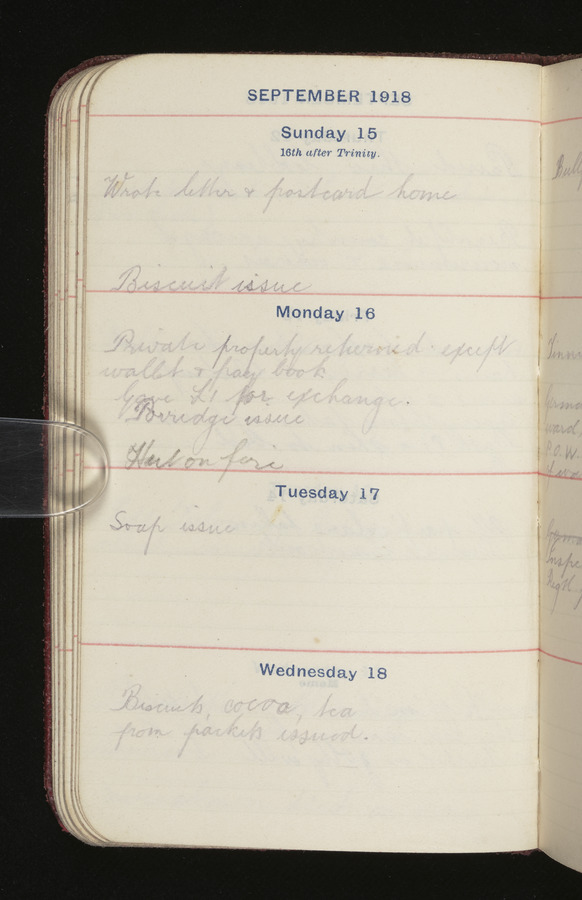 SEPTEMBER 1918
Sunday 15
16th after Trinity.
Wrote letter & postcard home
Biscuit issue
Monday 16
Private property returned except
wallet & pay book
Gave £1 for exchange.
Porridge issue
Hut on fire
Tuesday 17
Soap issue
Wednesday 18
Biscuits, cocoa, tea
from packets issued.